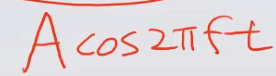 A cos2πft